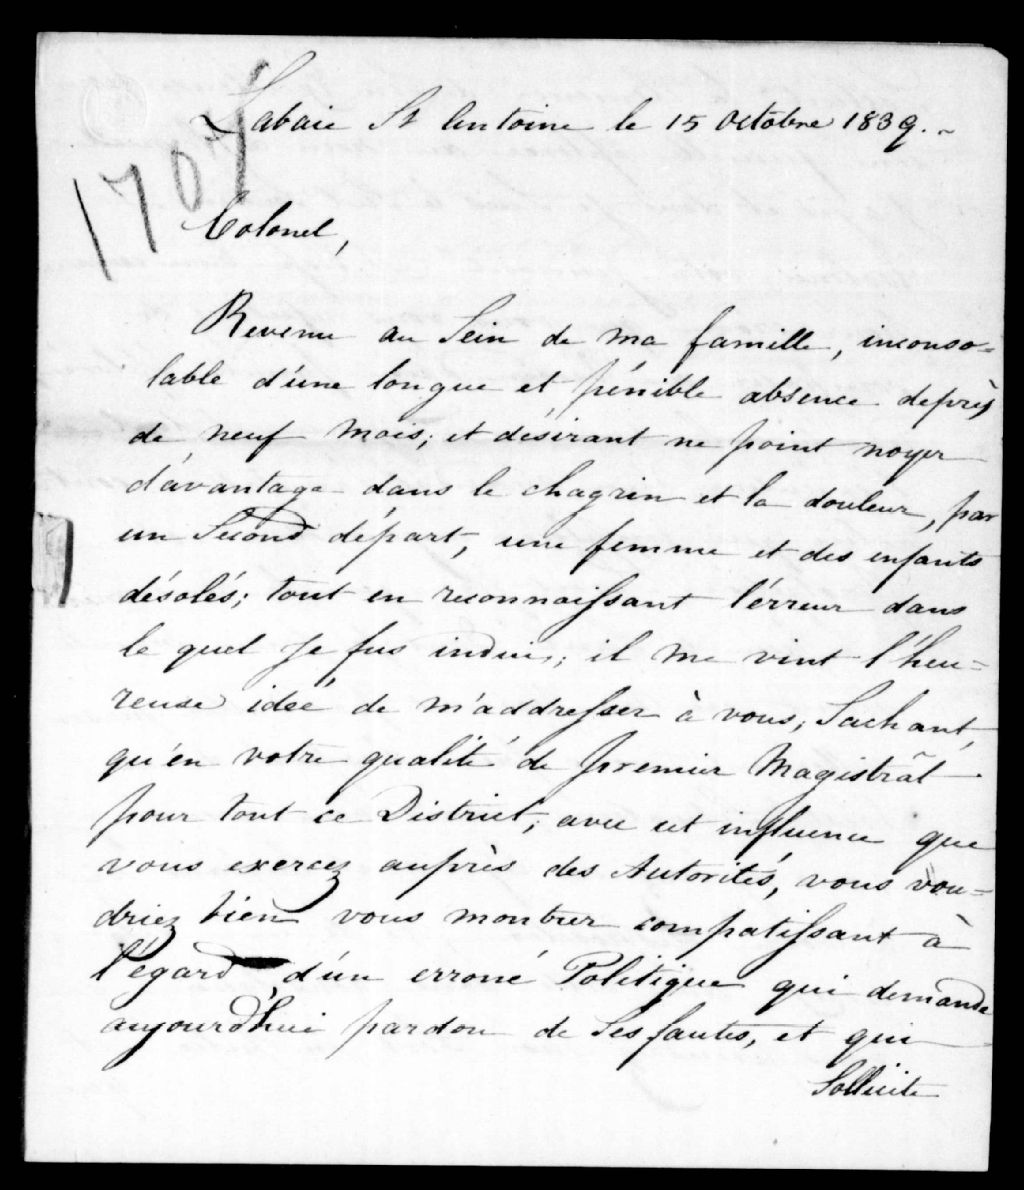 Labaie St Antoine le 15 Octobre 1839.~
1707
Colonel,
Revenu au Sein de ma famille, inconso=
lable d'une longue et pénible absence deprès
de neuf mois; et désirant ne point noyer
d'avantage dans le chagrin et la douleur, par
un Second départ, une femme et des enfants
désolés; tout en reconnaissant l'érreur dans
le quel je fus induis; il me vint l'heu=
reuse ideé de m'addresser à vous, Sachant,
qu'en votre qualité de premier Magistrât
pour tout ce District, avec cet influence que
vous exercez auprès des Autorités, vous vou=
driez bien vous montrer compatissant à
l'égard d'un erroné Politique qui demande
aujourd'hui pardon de Ses fautes, et qui
Sollicite